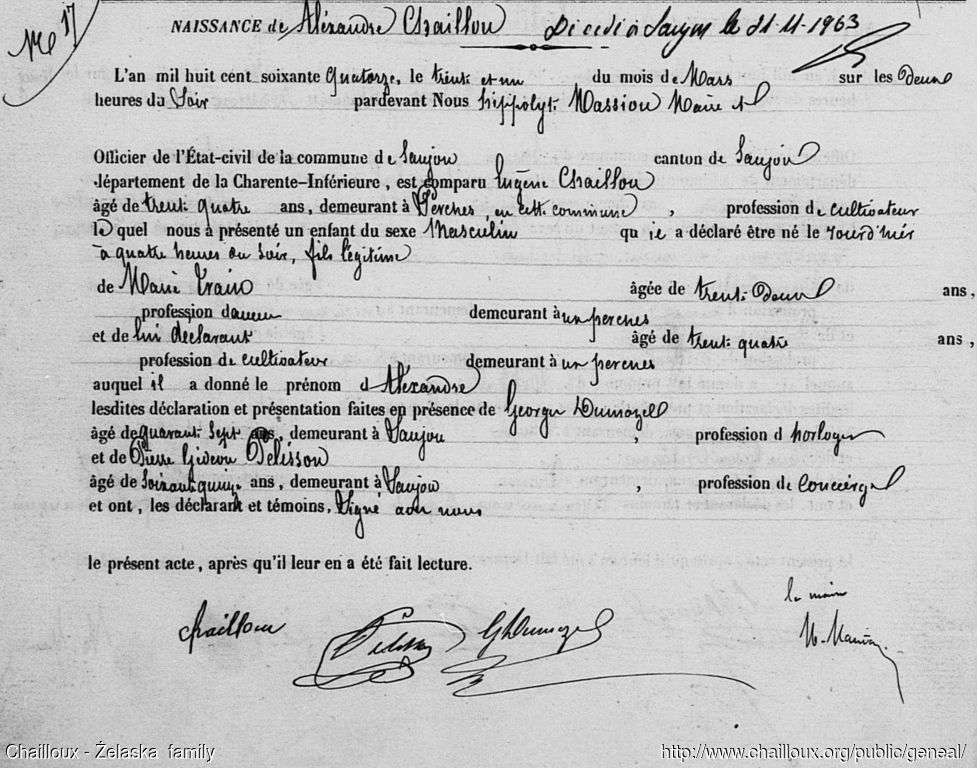 No 17
NAISSANCE de Aléxandre Chaillou Décédé à Saujon le 21-11-1963
L'an mil huit cent soixante quatorze, le trente et un du mois de Mars sur les deux
heures du Soir pardevant Nous hippolyte Massiou Maire et
Officier de l'État-civil de la commune de Saujon canton de Saujon
département de la Charente-Inférieure, est comparu Eugène Chaillou
âgé de trente quatre ans, demeurant à Perches, en cette commune, profession de cultivateur
le quel nous a présenté un enfant du sexe Masculin qu ie a déclaré être né le jourd'hier
à quatre heures du soir, fils légitime
de Marie âgée de trente deux ans,
profession d aucun demeurant à un perches
et de lui déclarant âgé de trente quatre ans,
profession de cultivateur demeurant à un perches
auquel il a donné le prénom d Aléxandre
lesdites déclaration et présentation faites en présence de George Dumazel
âgé de quarante sept ans, demeurant à Saujon, profession d horloger
et de Pierre Gédéon Pelisson
âgé de soixante quinze ans, demeurant à Saujon, profession de concierge
et ont, les déclarant et témoins, Signé avec nous
le présent acte, après qu'il leur en a été fait lecture.
le maire
chaillou Pelisson G Dumazel H. Massiou
Chailloux - Želaska family http://www.chailloux.org/public/geneal/